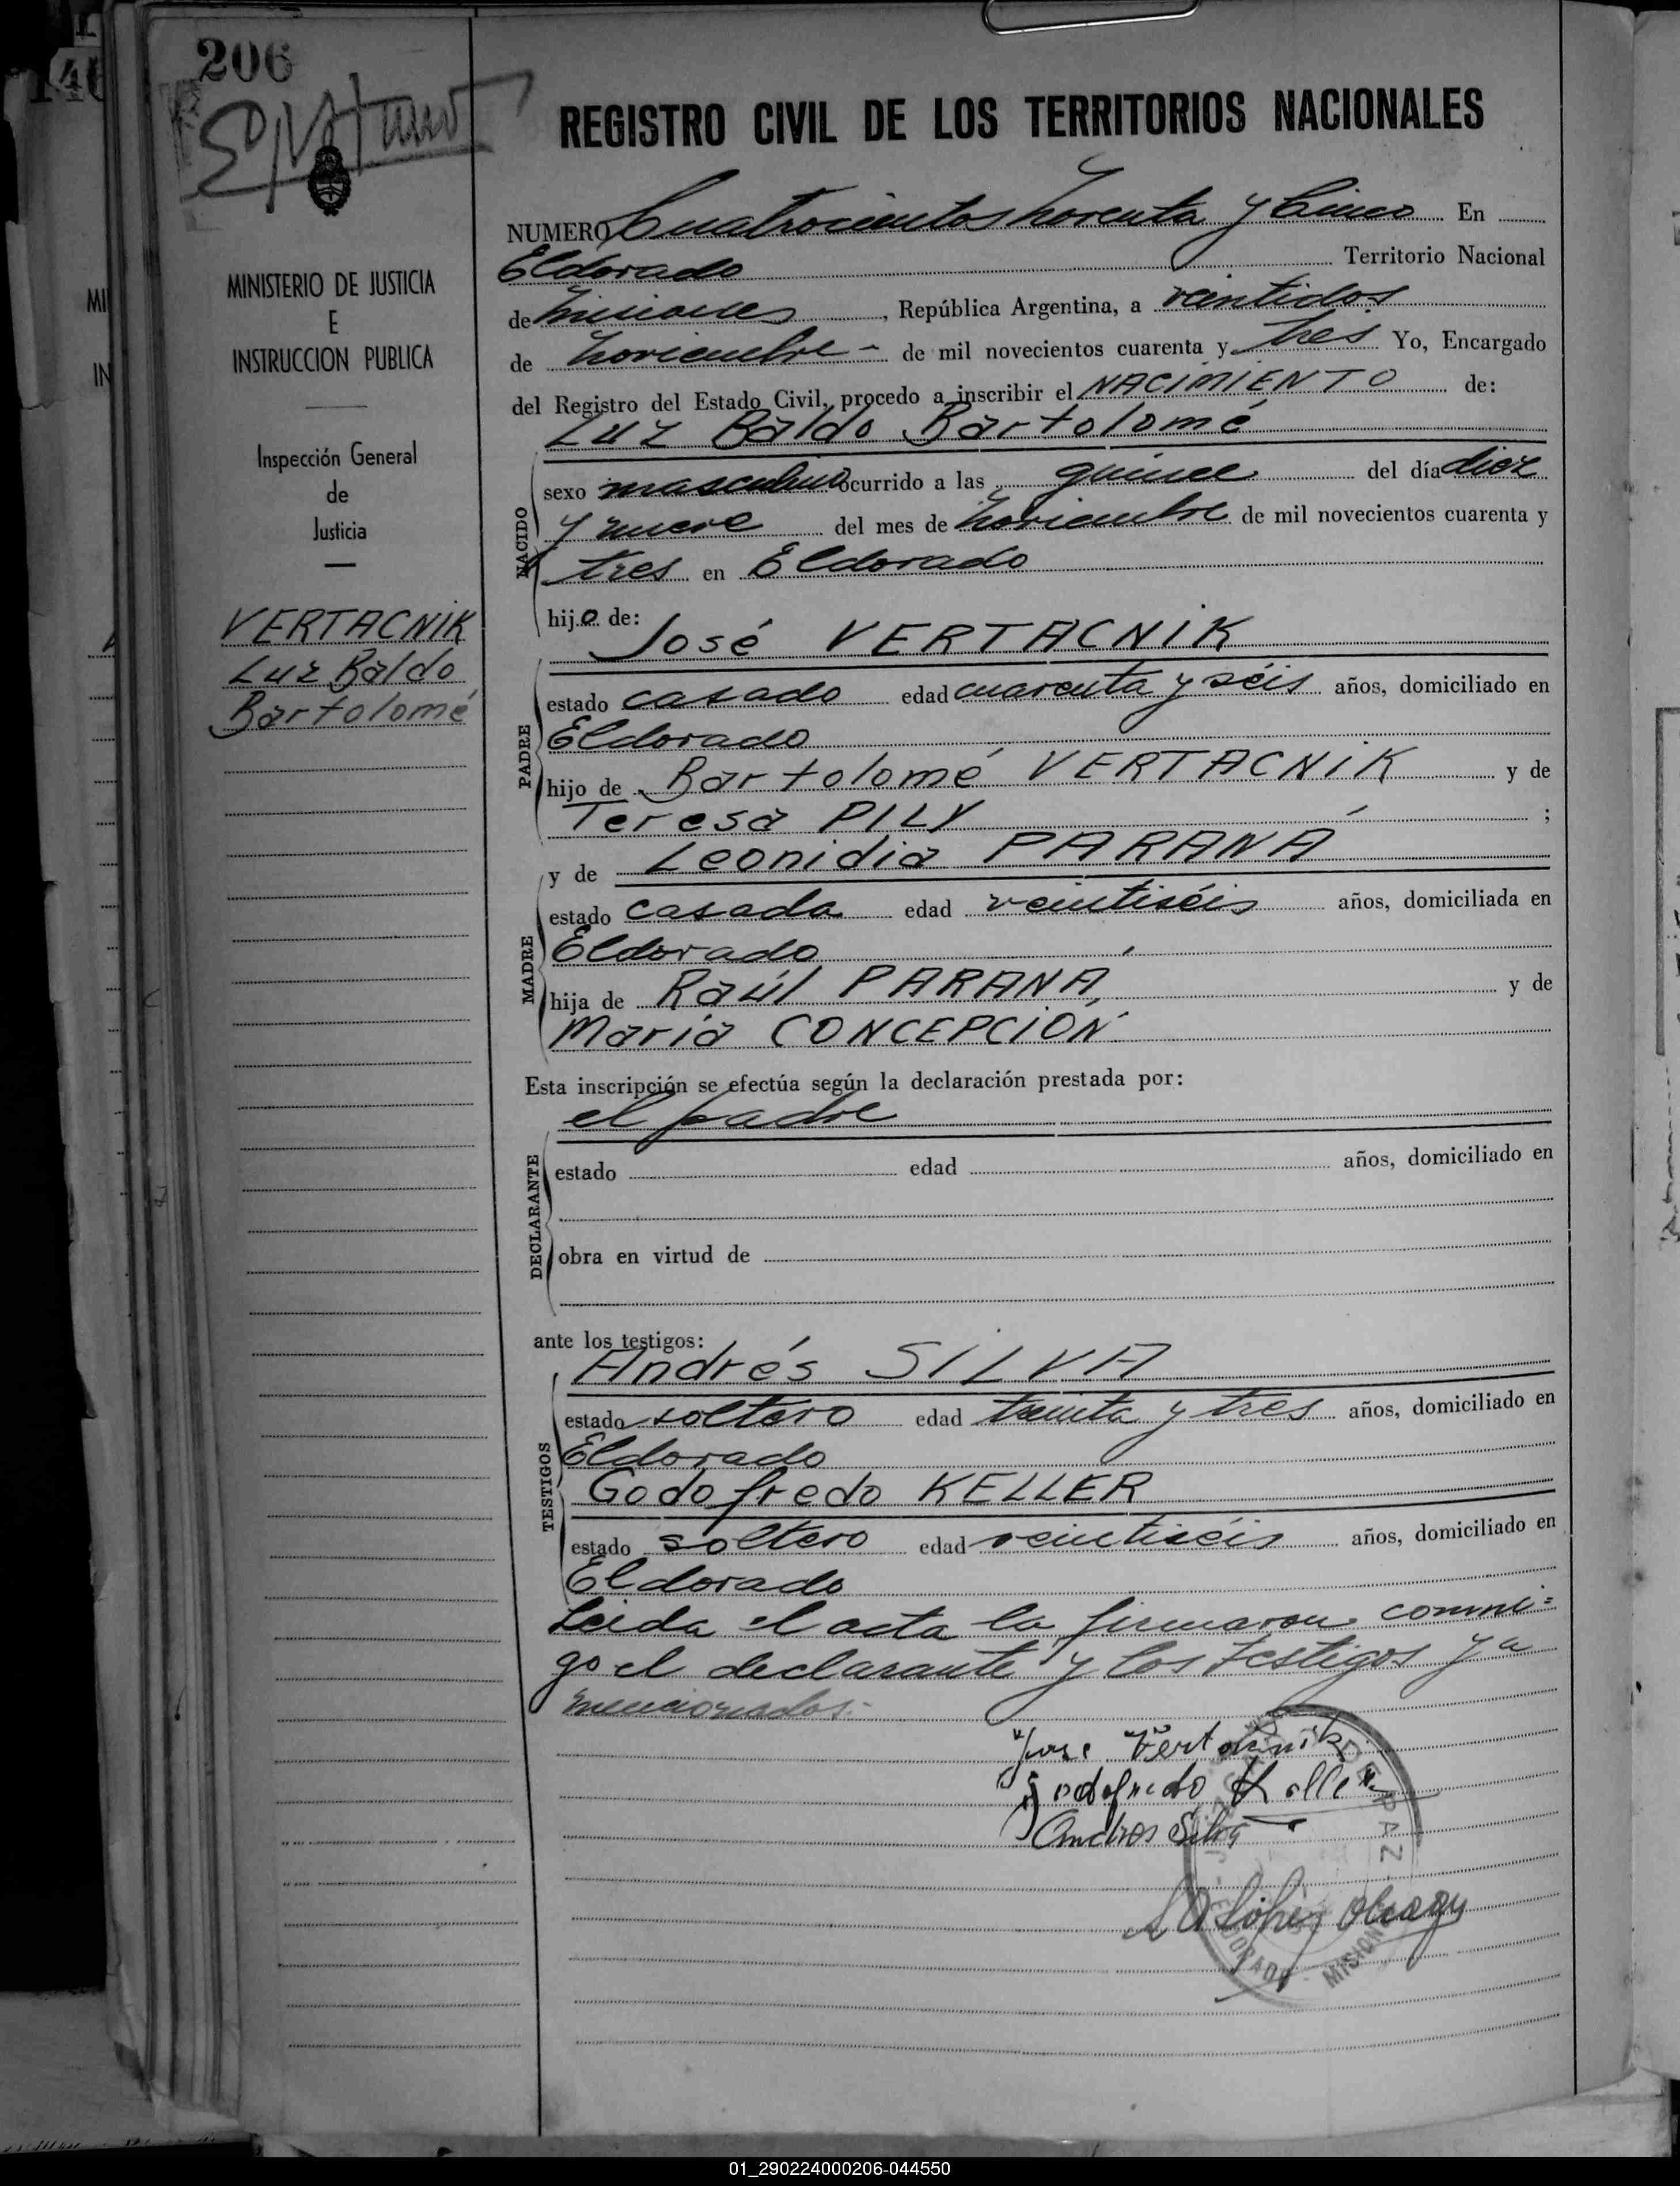 206
REGISTRO CIVIL DE LOS TERRITORIOS NACIONALES
NUMERO Cuatrocientos Noventa y Cinco En
Eldorado Territorio Nacional
de Misiones, República Argentina, a veintidos
de Noviembre - de mil novecientos cuarenta y tres Yo, Encargado
del Registro del Estado Civil, procedo a inscribir el NACIMIENTO de:
Luz Baldo Bartolomé
NACIDO
sexo masculino ocurrido a las quince del día diez
y nueve del mes de Noviembre de mil novecientos cuarenta y
tres en Eldorado
hijo de:
José VERTACNIK
PADRE
estado casado edad cuarenta y séis años, domiciliado en
Eldorado
hijo de Bartolomé VERTACNIK y de
Teresa PILY ;
y de Leonidia PARANÁ
MADRE
estado casada edad veintiséis años, domiciliada en
Eldorado
hija de Raúl PARANÁ y de
María CONCEPCIÓN
Esta inscripción se efectúa según la declaración prestada por:
el padre
DECLARANTE
estado edad años, domiciliado en
obra en virtud de
ante los testigos:
Andrés SILVA
TESTIGOS
estado soltero edad treinta y tres años, domiciliado en
Eldorado
Godofredo KELLER
estado soltero edad veintiséis años, domiciliado en
Eldorado
Leida el acta la firmaron conmi=
go el declarante y los testigos ya
mencionados.-
Jose Vertacnik
Godofredo Keller
Andres Silva
DE PAZ
ELDORADO - MISIONES
MINISTERIO DE JUSTICIA
E
INSTRUCCION PUBLICA
Inspección General
de
Justicia
VERTACNIK
Luz Baldo
Bartolomé
01_290224000206-044550